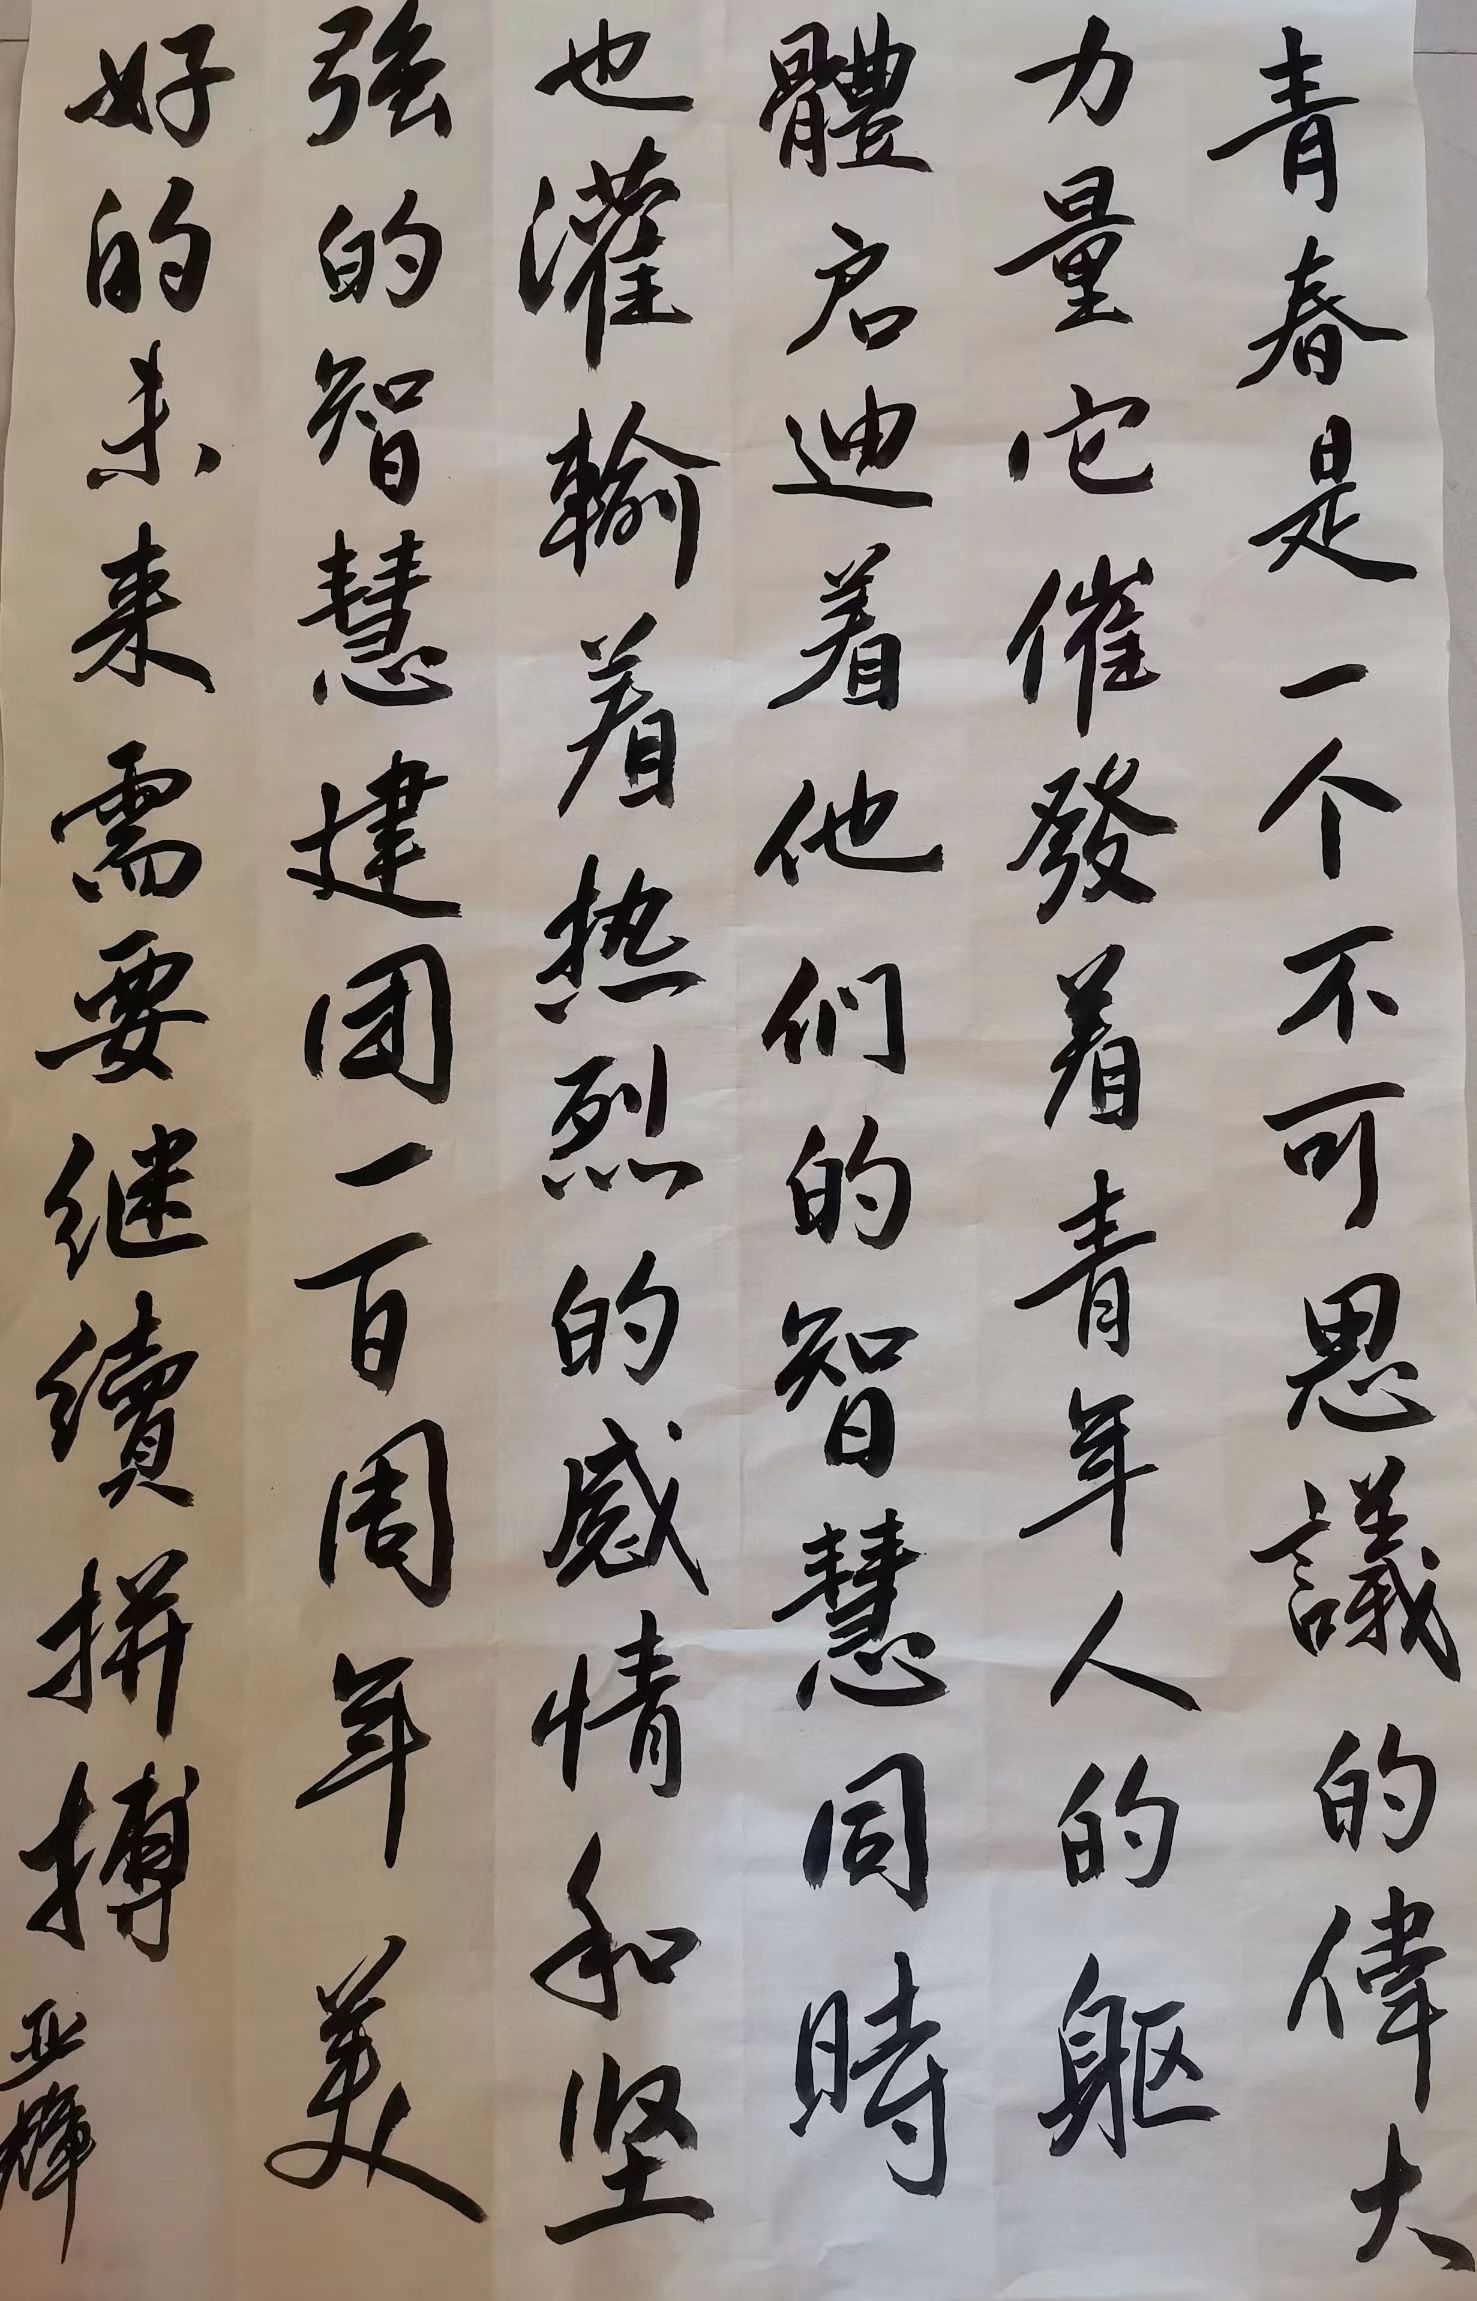 青春是一个不可思議的偉大
力量它催發着青年人的軀
體启迪着他们的智慧同時
也灌輸着热烈的感情和坚
強的智慧建团一百周年美
好的未来需要继續拼搏
亚輝